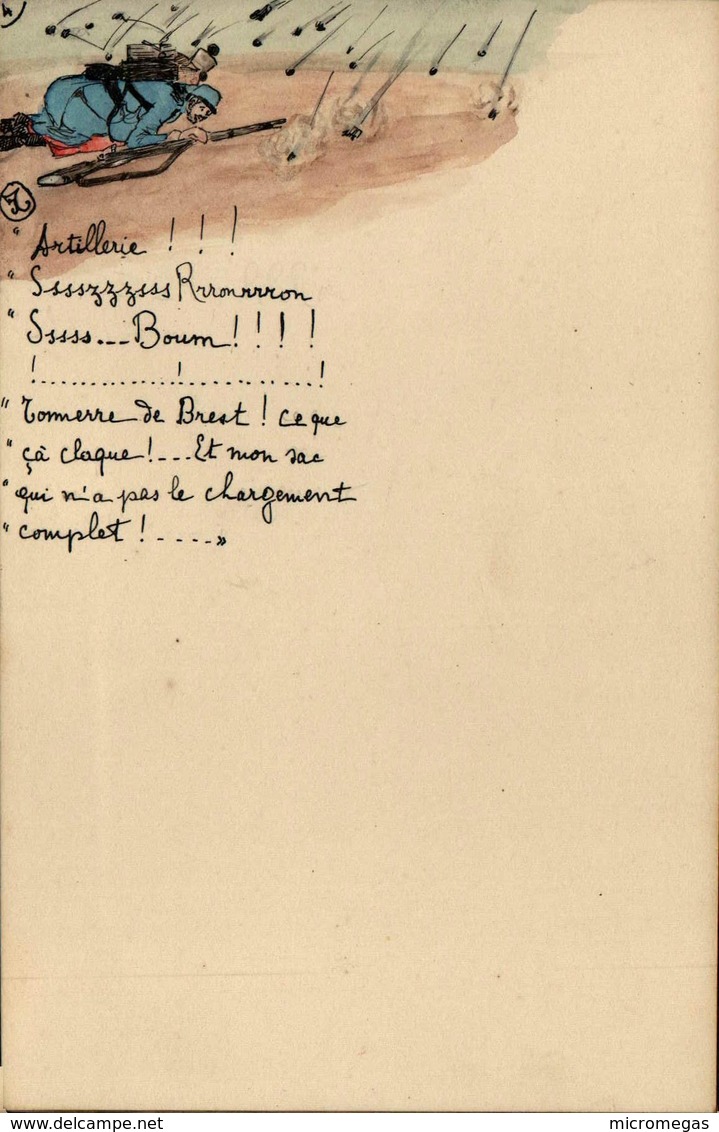 4)
" Artillerie ! ! !
" SssszzzsssRrronrrron
" Sssss...Boum ! ! ! !
!..............!............!
" Tonnerre de Brest ! ce que
" çà claque !...Et mon sac
" qui n'a pas le chargement
" complet !.....»
www.delcampe.net
micromegas